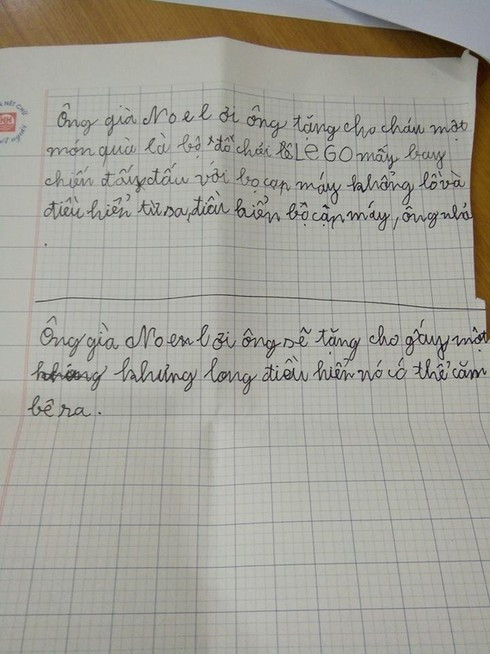 Ông già Noel ơi ông tặng cho cháu một
món quà là bộ đồ chơi lô LEGO mấy bay
chiến đấy, đấu với bọ cạp máy khổng lồ và
điều hiển từ sa, điều kiển bộ cận máy, ông nhá
.
Ông già Noen lơi ông sẽ tặng cho gấy một
khưng long điều hiển nó có thể căm
bê ra.